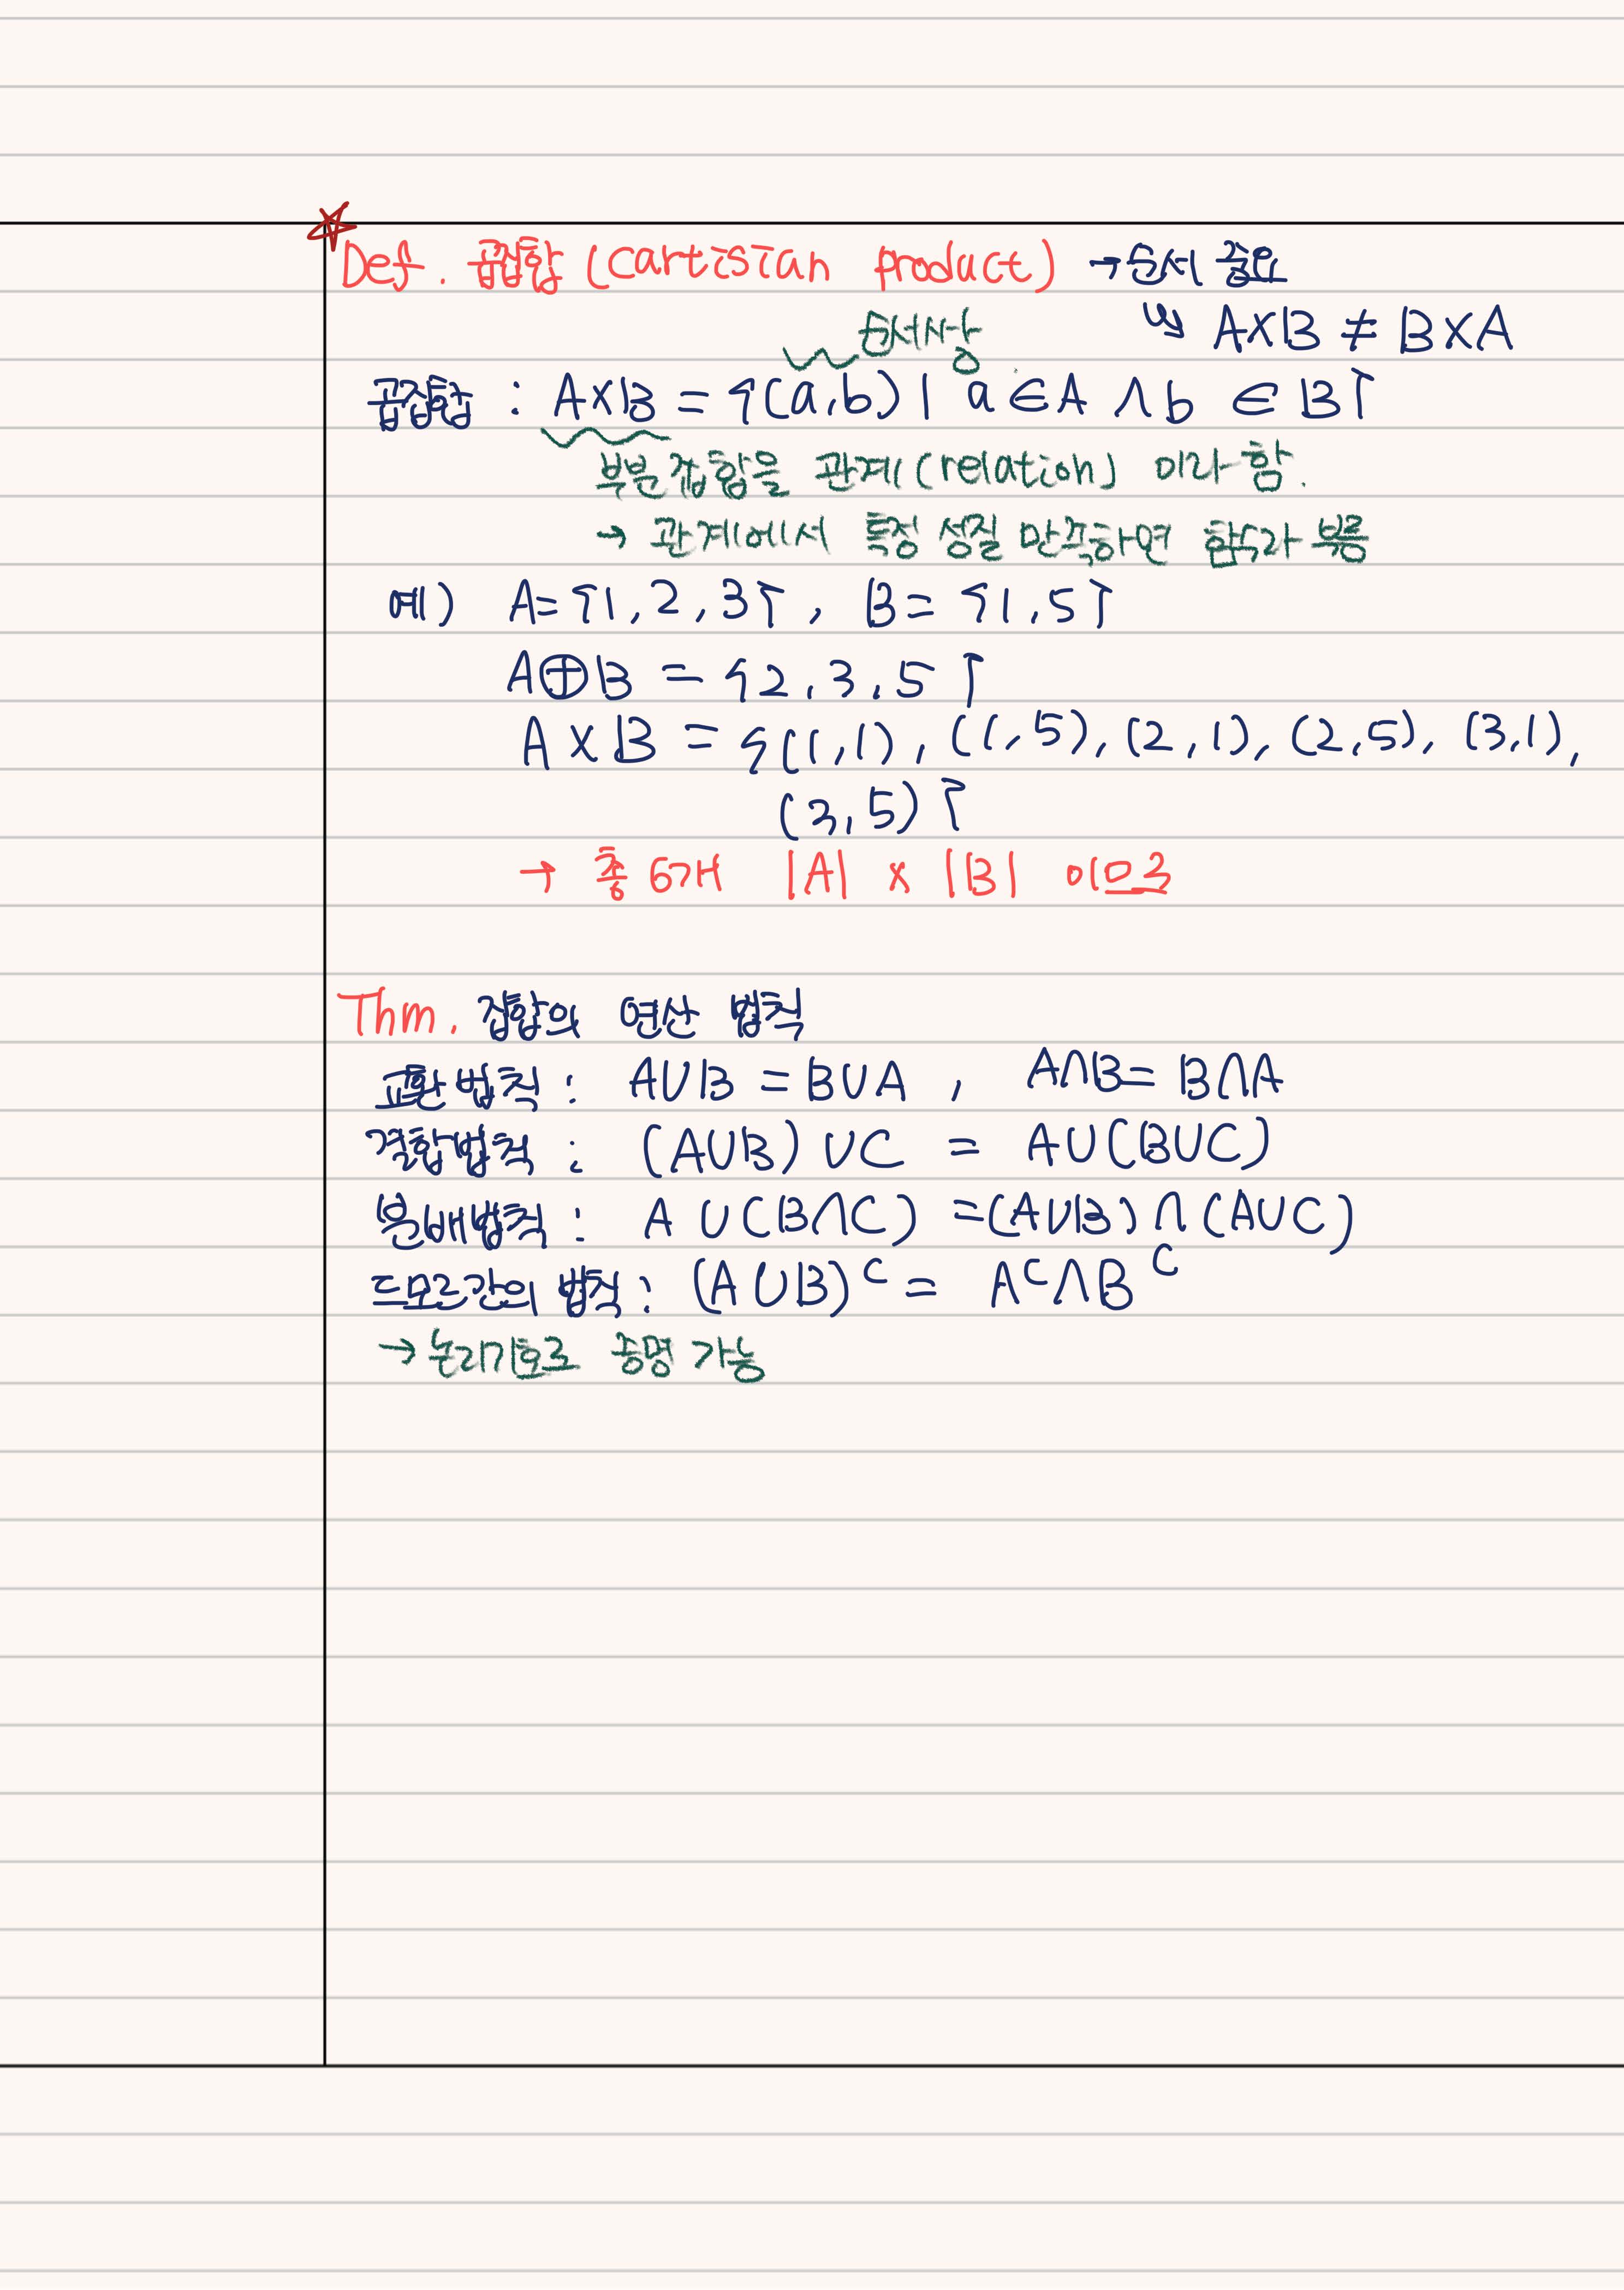 Def. 곱집합 (cartisian product) → 순서 중요
↳ A×B ≠ B×A
순서쌍
곱집합 : A×B = {(a,b) | a∈A ∧ b ∈ B}
부분집합을 관계(relation) 이라 함.
→ 관계에서 특정 성질 만족하면 함수라 부름
예) A={1,2,3}, B={1,5}
A⊕B = {2,3,5}
A×B = {(1,1), (1,5), (2,1), (2,5), (3,1),
(3,5)}
→ 총 6개 |A| × |B| 이므로
Thm. 집합의 연산 법칙
교환법칙 : A∪B = B∪A , A∩B = B∩A
결합법칙 : (A∪B)∪C = A∪(B∪C)
분배법칙 : A∪(B∩C) = (A∪B)∩(A∪C)
드모르간의 법칙 : (A∪B)ᶜ = Aᶜ∩Bᶜ
→ 논리기호로 증명 가능